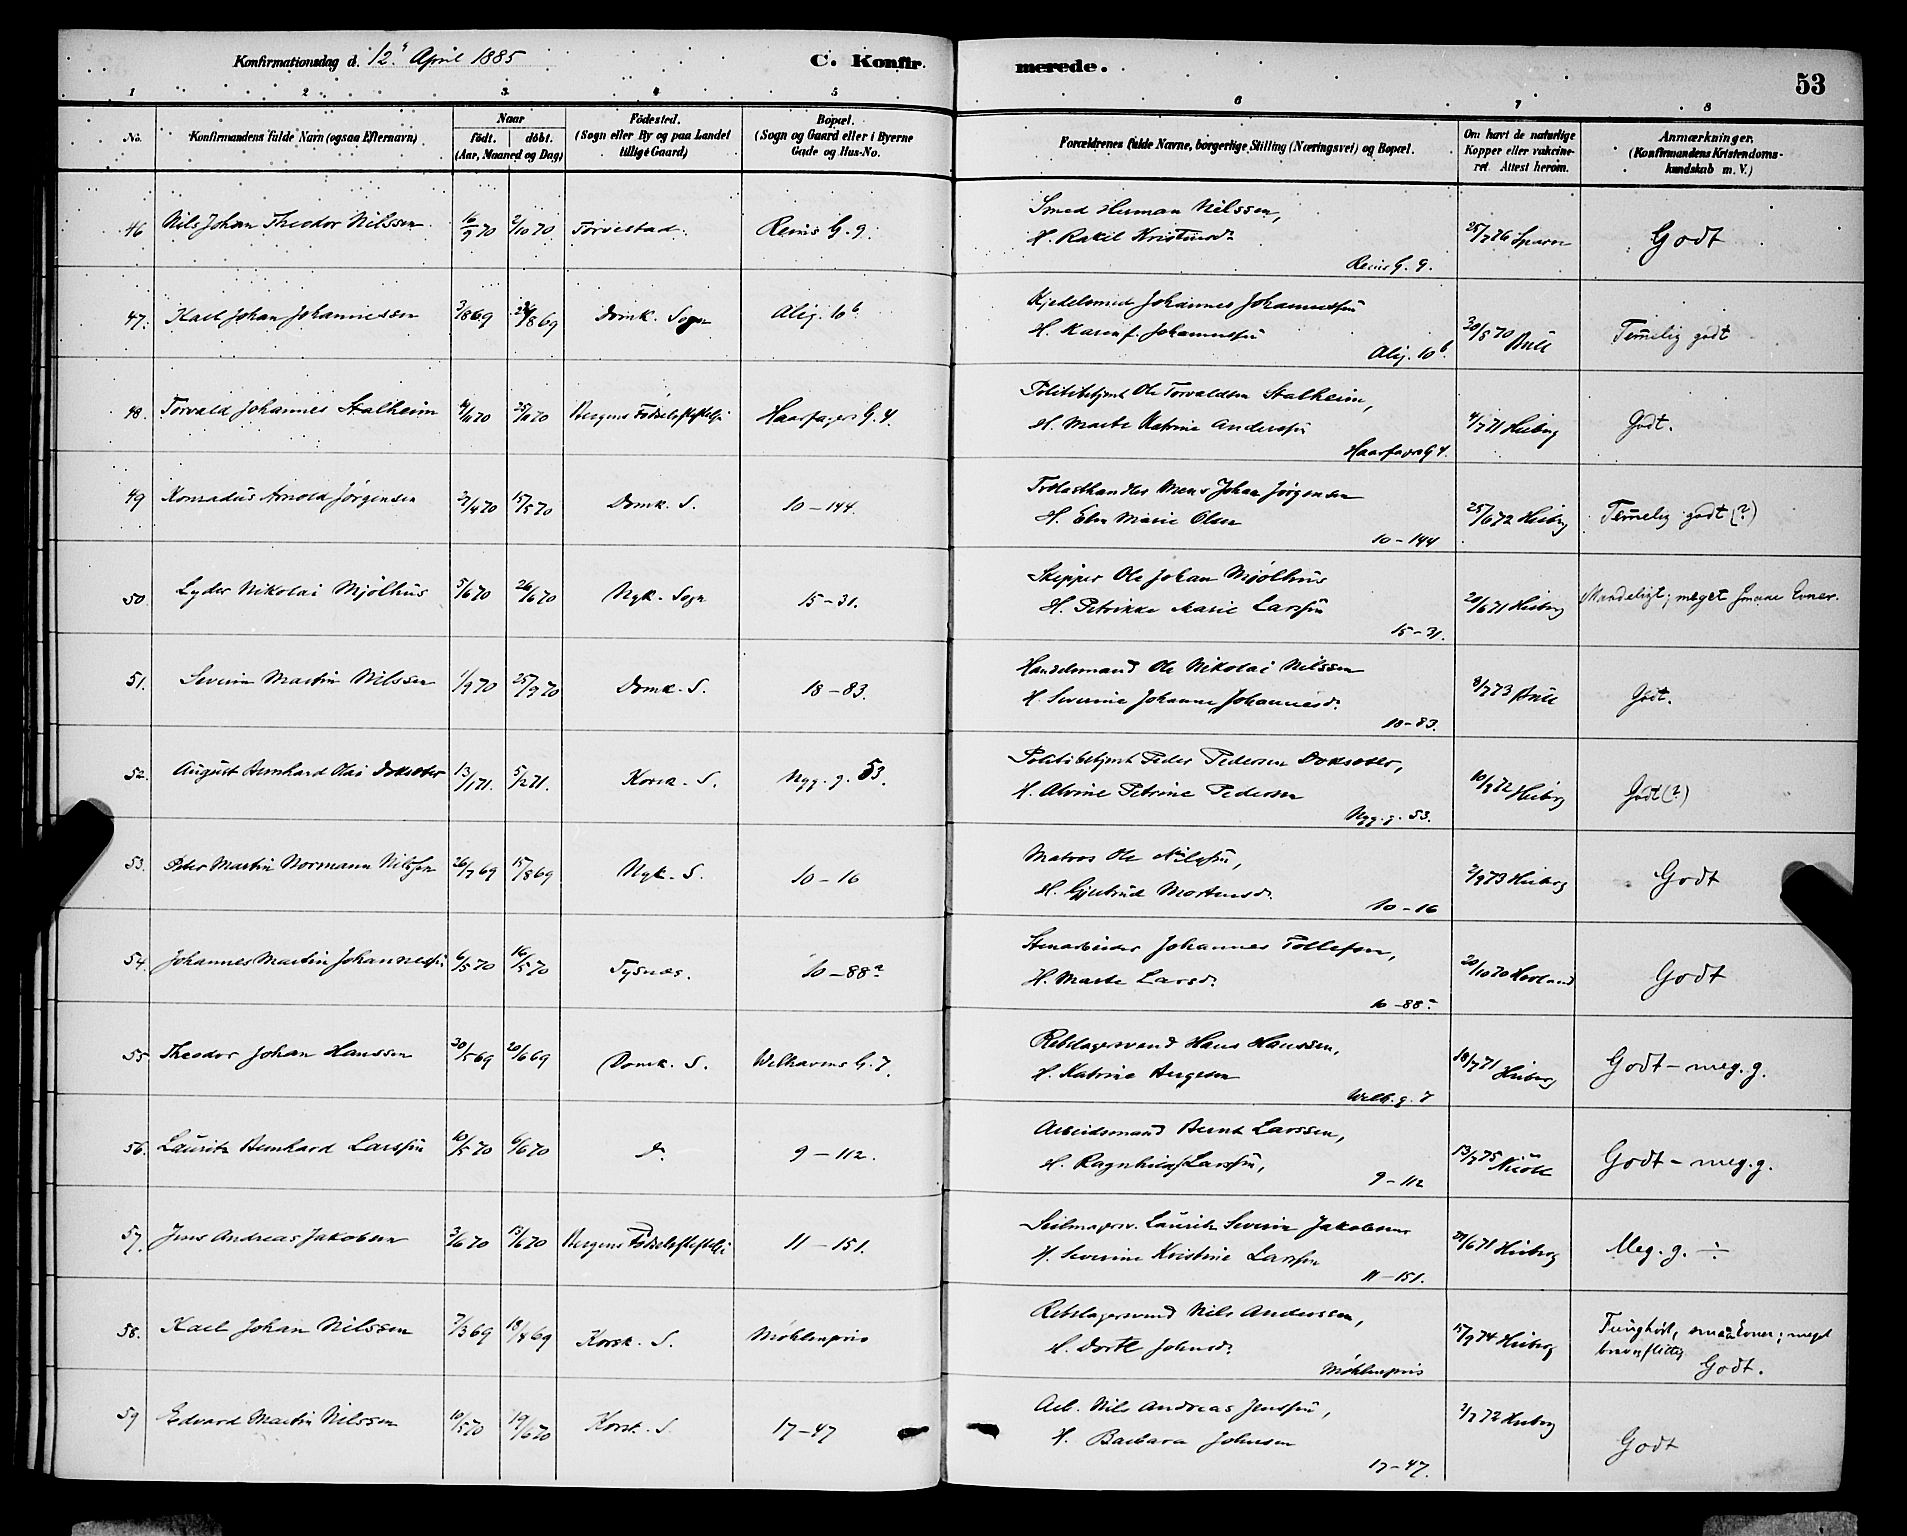 Konfirmationsdag d. 12' April 1885
C. Konfir
merede.
53
1 2 3 4 5 6 7 8
No.
Konfirmandens fulde Navn (ogsaa Efternavn)
Naar
födt. döbt.
(Aar, Maaned og Dag)
Födested.
(Sogn eller By og paa Landet
tillige Gaard)
Bopæl.
(Sogn og Gaard eller i Byerne
Gade og Hus-No.
Forældrenes fulde Navne, borgerlige Stilling (Næringsvei) og Bopæl.
Om havt de naturlige
Kopper eller vaccine-
ret. Attest herom.
Anmærkninger.
(Konfirmandens Kristendoms-
kundskab m. V.)
46 Nils Johan Theodor Nilssen 16/9 70 2/10 70 Torvestad. G. 9.
Smed Herman Nilssen,
H. Rakel Kristinsd.
G. 9.
25/7 76 Godt
47. Karl Johan Johannessen 3/8 69 /8 69 Domk. Sogn Allég. 10 b
Kjedelsmed Johannes Johannessen
H. Karen f. Johannessen
10 b.
30/5 70 Bull Temelig godt
48. Torvald Johannes Stalheim /11 70 70 Bergens Födselsstiftelse Haarfagers G. 4.
Politibetjent Ole Torvaldsen Stalheim,
H. Marte Katrine Anderssen
Haarfagers G 4.
4/7 71 Heiberg Godt.
49 Konradus Arnold Jörgensen /4 70 15/5 70 Domk. S. 10-144.
Johan Jörgensen
H. Marie Olsen
10-144
25/6 72 Heiberg Temelig godt (?)
50. Lyder Nikolai Mjölhus 5/6 70 26/6 70 Nyk. Sogn 15-31.
Skipper Ole Johan Mjölhus
H. Petrikke Marie Larssen
15-31.
20/6 71 Heiberg Maadeligt; meget smaae Evner.
51. Severin Martin Nilssen 1/9 70 25/9 70 Domk. S. 18-83.
Handelsmand Ole Nikolai Nilssen
H. Severine Johanne Johannesd.
18-83.
8/7 73 Bull Godt.
52. August Bernhard Olai 13/1 71. 5/2 71. Korsk. S. Nyg. g. 53.
Politibetjent Peder Pedersen
H. Alvine Petrine Pedersen
Nyg. g. 53.
10/9 72 Heiberg Godt (?)
53. Peter Martin Normann Nilssen 26/7 69 15/8 69 Nyk. S. 10-16
Matros Ole Nilssen,
H. Gjertrud Mortensd.
10-16
2/9 73 Heiberg Godt
54. Johannes Martin Johannessen 6/5 70 16/5 70 Tysnæs. 10-88 a
Stenarbeider Johannes Tollefsen,
H. Marte Larsd.
10-88 a
20/10 70 Hovland Godt
55 Theodor Johan Hanssen 30/5 69 20/6 69 Domk. S. Welhavens G. 7.
Rebslagersvend Hans Hanssen,
H. Katrine Bergesen
Welh. g. 7
18/7 71 Heiberg Godt - meg. g.
56. Lauritz Bernhard Larssen 10/5 70 6/6 70 D. 9-112.
Arbeidsmand Bernt Larssen,
H. Ragnhild Larssen,
9-112
13/7 75 Godt - meg. g.
57. Jens Andreas Jakobsen 3/6 70 13/6 70 Bergens Födselsstiftelse 11-151.
Seilmagersv. Lauritz Severin Jakobsen
H. Severine Kristine Larssen
11-151.
/6 71 Heiberg Meg. g. ÷
58. Karl Johan Nilssen 7/3 69 18/4 69 Korsk. S. Möhlenpris
Rebslagersvend Nils Anderssen,
H. Dorte Johnsd.
Möhlenpris
15/9 74 Heiberg Tunghört, smaa Evner; meget
brav og flittig
Godt.
59 Edvard Martin Nilssen 10/5 70 19/6 70 Korsk. S. 17-47
Arb. Nils Andreas Jenssen,
H. Barbara Johnsen
17-47.
2/7 72 Heiberg
Godt